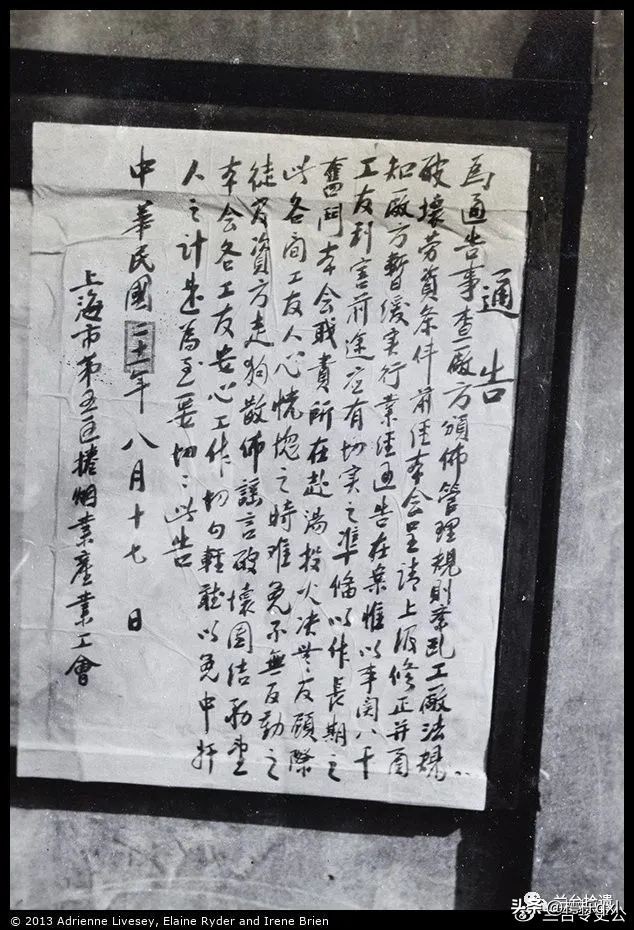 通告
為通告事查廠方頒佈管理規則紊乱工廠法規
破壞劳資条件前經本会呈請上級修正并函
知廠方暫缓实行業經通告在案惟以事関八千
工友利害前途应有切实之準備以作長期之
奮鬥本会職責所在赴湯投火决無反顾際
此各間工友人心恍惚之時难免不無反動之
徒為資方走狗散佈謠言破壞团结務望
本会各工友安心工作切勿輕聽以免中奸
人之計是為至要切〻此告
中華民國二十一年八月十七日
上海市第五区捲烟業產業工會
© 2013 Adrienne Livesey, Elaine Ryder and Irene Brien
兰台拾遗